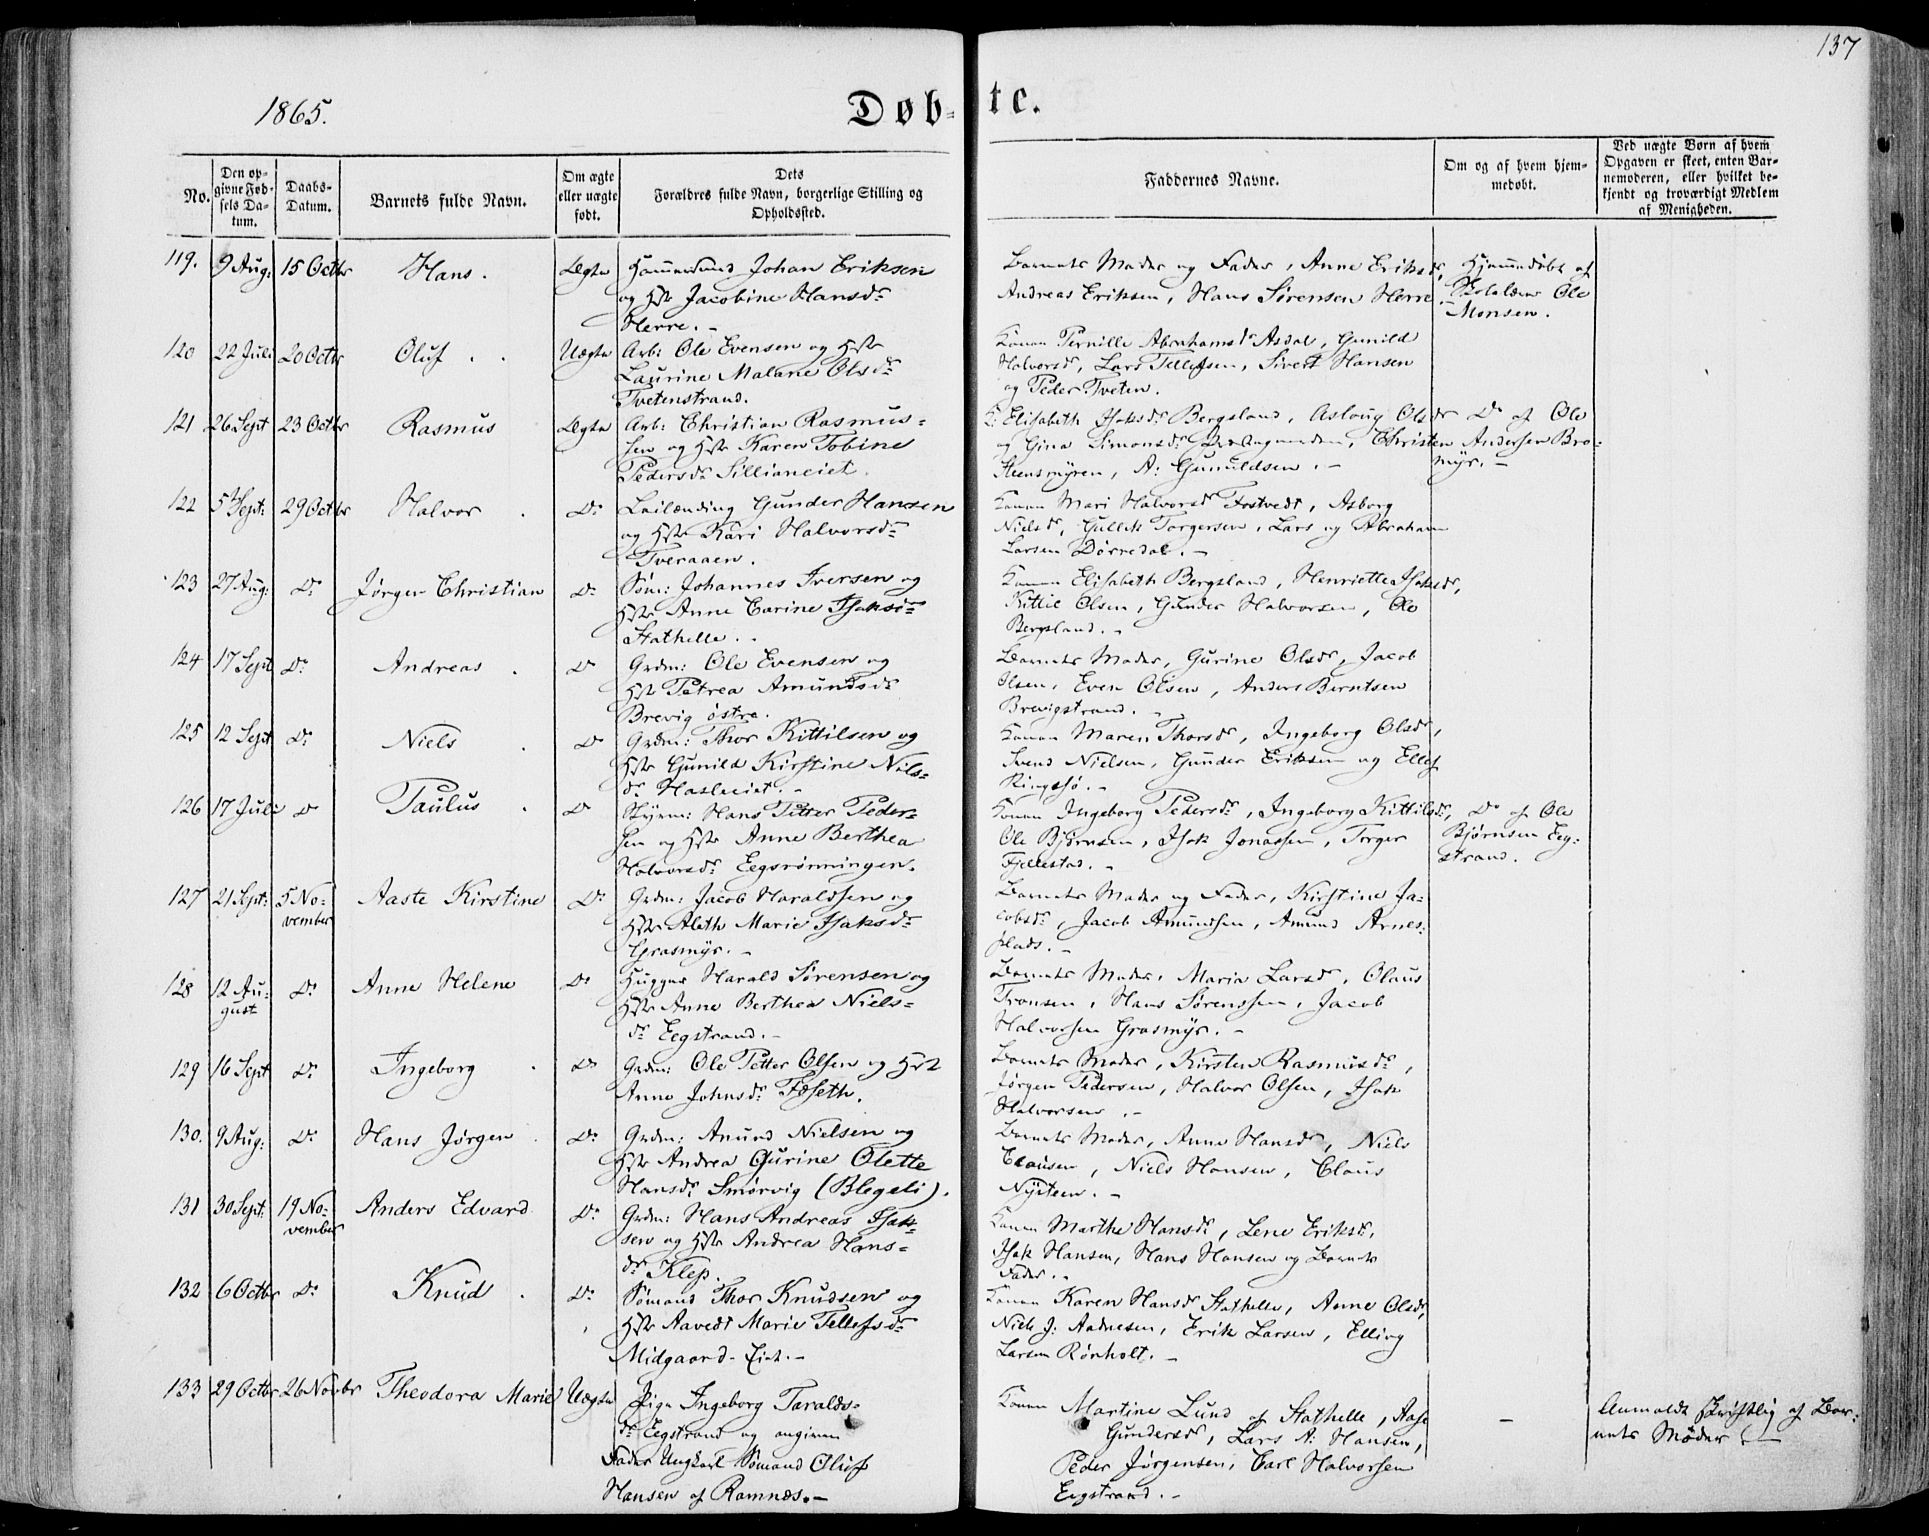 137
1865.
Døb-
te.
No.
Den op-
givne Fød-
sels Da-
tum.
Daabs-
Datum.
Barnets fulde Navn.
Om ægte
eller uægte
født.
Dets
Forældres fulde Navn, borgerlige Stilling og
Opholdssted.
Faddernes Navne.
Om og af hvem hjem-
medøbt.
Ved uægte Børn af hvem
Opgaven er skeet, enten Bar-
nemoderen, eller hvilket be-
kjendt og troværdigt Medlem
af Menigheden.
119. 9 Aug: 15 Octbr Hans. Ægte Johan Eriksen
og Hst Jacobine Hansdr
Herre.-
Barnets Moder og Fader, Anne Eriksdr,
Andreas Eriksen, Hans Sørensen Herre.-
Hjemmedøbt af
Ole
Monsen.
120 22 Juli 20 Octbr Oluf. Uægte Arb: Ole Evensen og Hst
Laurine Malane Olsdr
Tvetenstrand.
Konen Pernille Abrahamsdr Asdal, Gunild
Halvorsdr, Lars Tellefsen, Sivert Hansen
og Peder Tveten.
121 26 Sept 23 Octbr Rasmus Ægte Arb: Christian Rasmus-
sen og Hst Karen Tobine
Pedersdr Sillianeiet.
K: Elisabeth Isaksdr Bergsland, Aslaug Olsdr
og Gina Simonsdr Christen
Steensmyren, A: Gunuldsen.-
Do af Ole
Andersen Bro-
myr.-
122 5 Sept: 29 Octbr Halvor. Do Leilænding Gunder Hansen
og Hst Kari Halvorsdr
Tveraaen.
Konen Mari Halvorsdr Tostvedt, Asborg
Nielsdr, Gullek Torgersen, Lars og Abraham
Larsen Dørredal.-
123 27 Aug: Do Jørgen Christian Do Søm: Johannes Iversen og
Hst Anne Carine Isaksdr
Stathelle.
Konen Elisabeth Bergsland, Henriette Isaksdr,
Kittil Olsen, Gunder Halvorsen, Ole
Bergsland.-
124 17 Sept Do Andreas. Do Grdm: Ole Evensen og
Hst Petrea Amundsdr
Brevig østre.
Barnets Moder, Gurine Olsdr, Jacob
Olsen, Even Olsen, Anders Berntsen
Brevigstrand.-
125 12 Sept Do Niels. Do Grdm: Thor Kittilsen og
Hst Gunild Kirstine Nils-
dr Hasleeiet.-
Konen Maren Thorsdr, Ingeborg Olsdr,
Svend Nielsen, Gunder Eriksen og Ellef
Ringsjø.-
126 17 Juli Do Paulus. Do Styrm: Hans Petter Peder-
sen og Hst Anne Berthea
Halvorsdr Eegsrønningen.
Konen Ingeborg Pedersdr, Ingeborg Kittilsdr,
Ole Bjørnsen, Isak Jonassen, Torger
Fjellestad.-
Do af Ole
Bjørnsen Eeg-
strand.
127 21 Sept: 5 No-
vember Aaste Kirstine Do Grdm: Jacob Haraldsen og
Hst Aleth Marie Isaksdr
Grasmyr.-
Barnets Moder og Fader, Kirstine Ja-
cobsdr, Jacob Amundsen, Amund Arnes-
plads.-
128 12 Au-
gust Do Anne Helene Do Harald Sørensen og
Hst Anne Berthea Niels-
dr Eegstrand.-
Barnets Moder, Maria Larsdr, Olaus
Tronsen, Hans Sørenssen, Jacob
Halvorsen Grasmyr.-
129 16 Sept Do Ingeborg. Do Grdm: Ole Petter Olsen og Hst
Anne Johnsdr Fosseth.
Barnets Moder, Kirsten Rasmusdr,
Jørgen Pedersen, Halvor Olsen, Isak
Halvorsen.-
130. 9 Aug: Do Hans Jørgen. Do Grdm: Anund Nielsen og
Hst Andrea Gurine Olette
Hansdr Smørvig (Blegeli).
Barnets Moder, Anne Hansdr, Niels
Clausen, Niels Hansen, Claus
Nysteen.-
131 30 Sept: 19 No-
vember Anders Edvard. Do Grdm: Hans Andreas Isak-
sen og Hst Andrea Hans-
dr Klep.
Konen Marthe Hansdr, Lene Eriksdr,
Isak Hansen, Hans Hansen og Barnets
Fader.-
132 6 Octbr Do Knud. Do Sømand Thor Knudsen og
Hst Aavedt Marie Tellefsdr
Midgaard-Eiet.-
Konen Karen Hansdr Stathelle, Anne Olsdr,
Niels J: Aadnesen, Erik Larsen, Elling
Larsen Rønholt.-
133 29 Octbr 26 Novbr Theodora Marie Uægte Pige Ingeborg Taralds-
dr Eegstrand og angiven
Fader Ungkarl Sømand Oluf
Hansen af Ramnæs.-
Konen Martine Lund af Stathelle, Aase
Gundersdr, Lars A: Hansen,
Peder Jørgensen, Carl Halvorsen
Eegstrand.-
-
Anmeldt skriftlig af Bar-
nets Moder.-